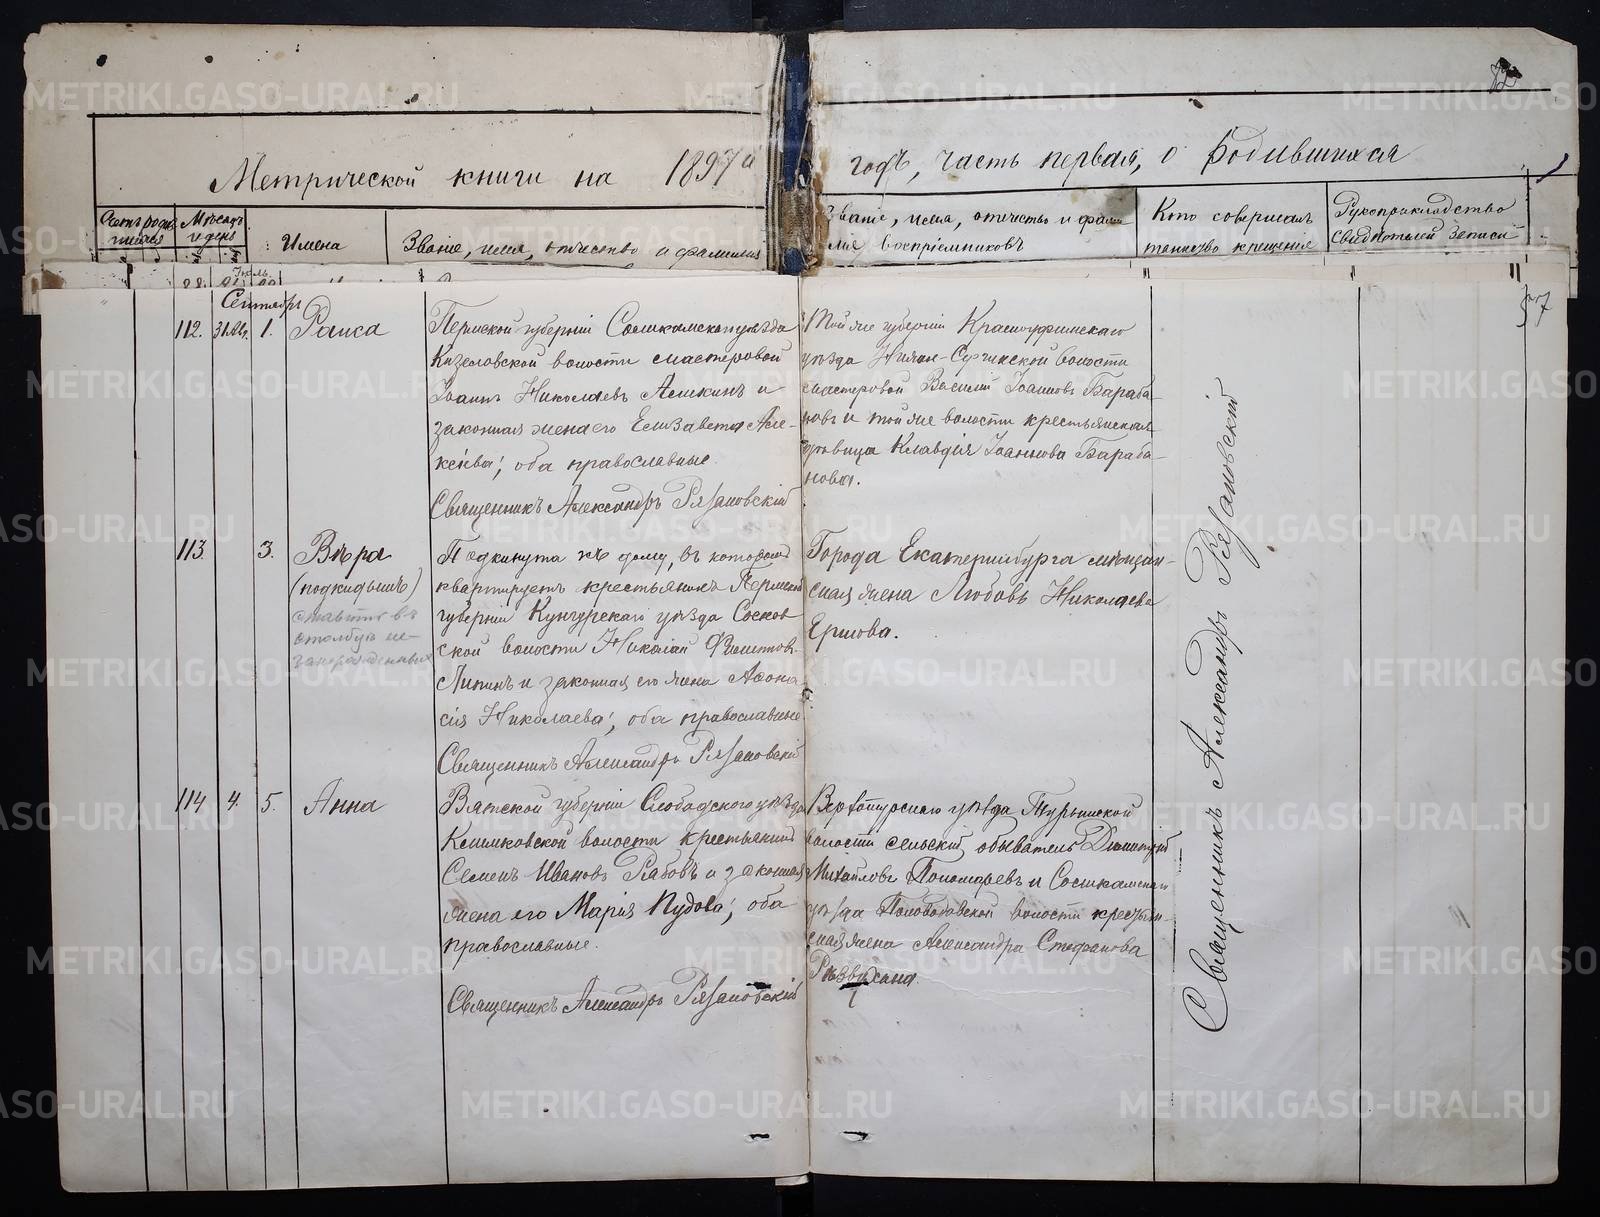 Метрической книги на 1897й годъ, часть первая, о родившихся
Счетъ родив-
шихся
Мѣсяцъ
и день
Имена
Званіе, имя, отчество и фамилія
Званіе, имя, отчество и фами-
лія воспріемниковъ
Кто совершалъ
таинство крещенія
Рукоприкладство
свидѣтелей записи
57
Сентябрь
112. 31 Авг. 1. Раиса
Пермской губерніи Соликамскаго уѣзда
Кизеловской волости мастеровой
Іоаннъ Николаевъ Аликинъ и
законная жена его Елизавета Але-
ксѣева, оба православные.
Священникъ Александръ Рязановскій
Той же губерніи Красноуфимскаго
уѣзда Нижне-Сергинской волости
мастеровой Василій Іоанновъ Бараба-
новъ и той же волости крестьянская
дѣвица Клавдія Іоаннова Бараба-
нова.
113. 3. Вѣра
(подкидышъ)
ставить въ
столбцѣ не-
законнорожденныхъ
Подкинута къ дому, въ которомъ
квартируетъ крестьянинъ Пермской
губерніи Кунгурскаго уѣзда Сосков-
ской волости Николай Филитовъ
Липинъ и законная его жена Афона-
сія Николаева, оба православные
Священникъ Александръ Рязановскій
Города Екатеринбурга мѣщан-
ская жена Любовь Николаева
Ершова.
114 4. 5. Анна
Вятской губерніи Слободского уѣзда
волости крестьянинъ
Семенъ Ивановъ Рябовъ и законная
жена его Марія Иудова, оба
православные.
Священникъ Александръ Рязановскій
Верхотурскаго уѣзда Турьинской
волости сельскій обыватель Димитрій
Михайловъ Пономаревъ и Соликамскаго
уѣзда Половодовской волости крестьян-
ская жена Александра Стефанова
Священникъ Александръ Рязановскій
METRIKI.GASO-URAL.RU